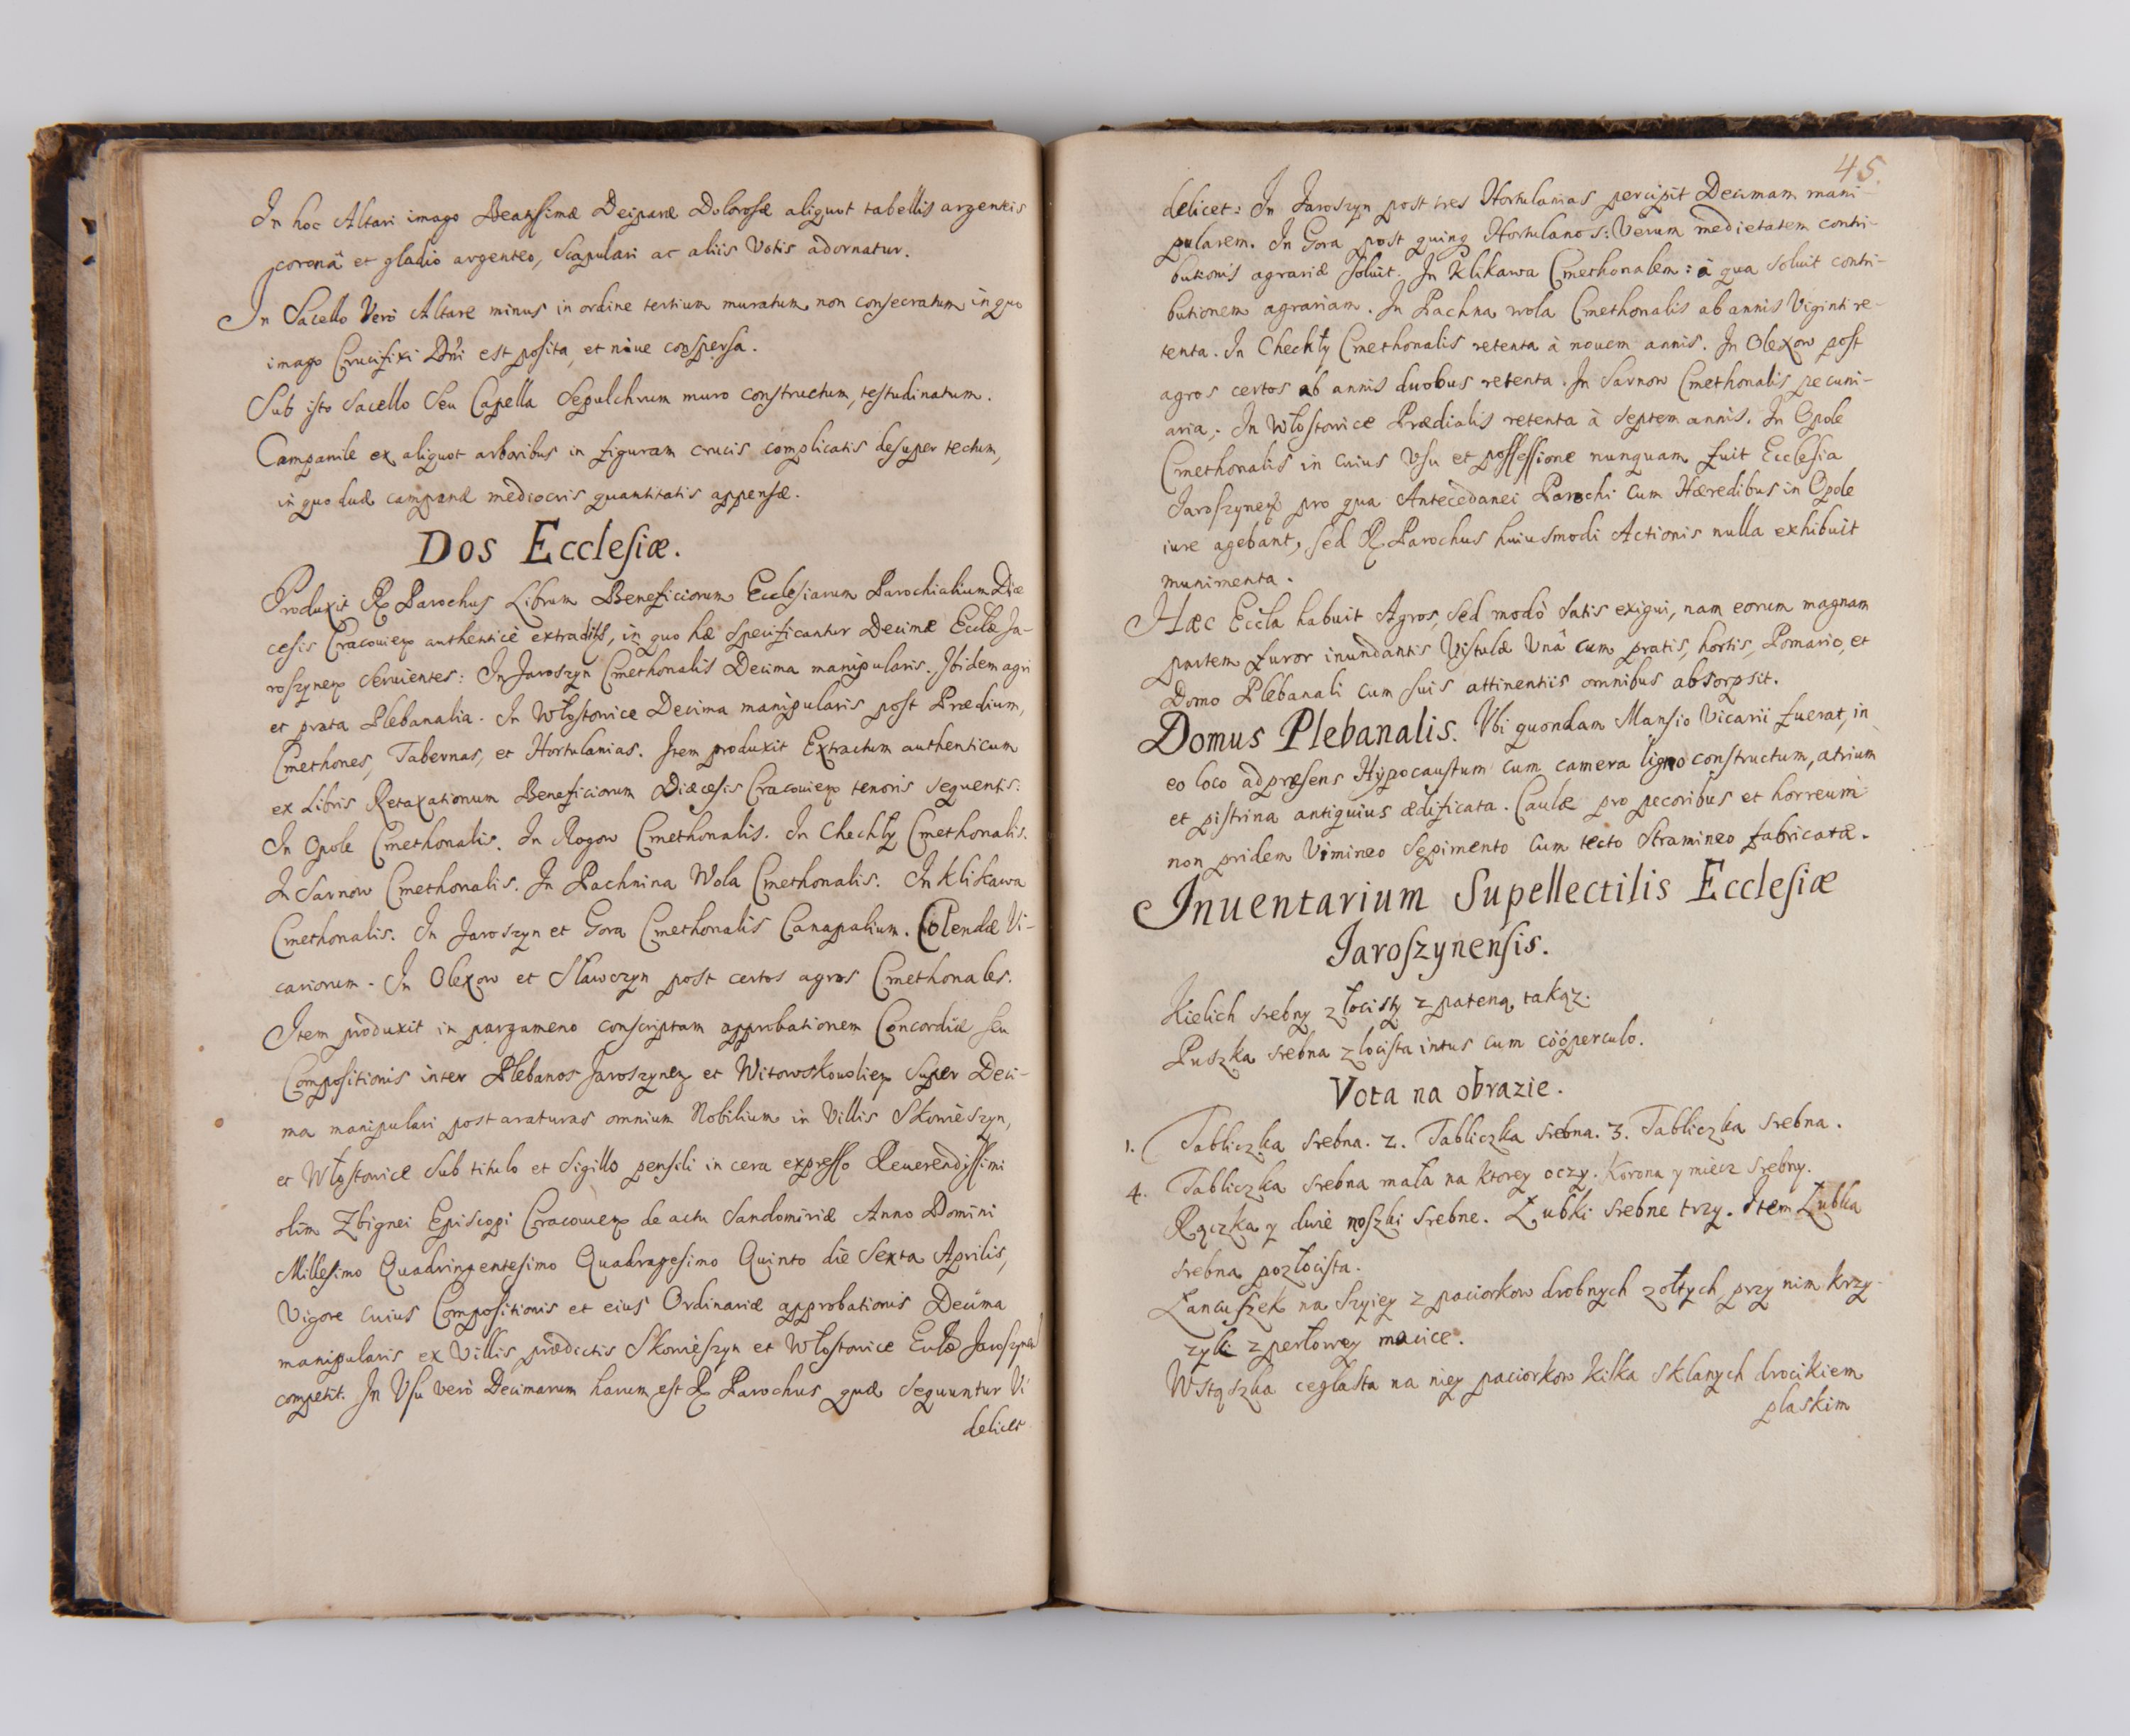 In hoc Altari imago Beatissimæ Deiparæ Dolorosæ aliquot tabellis argenteis
coronâ et gladio argenteo, Scapulari ac aliis Votis adornatur.
In Sacello Verò Altare minus in ordine tertium muratum non consecratum in quo
imago Crucifixi Dni est posita, et niue conspersa.
Sub isto Sacello Seu Capella Sepulchrum muro constructum, testudinatum.
Campanile ex aliquot arboribus in figuram crucis complicatis desuper tectum,
in quo duæ campanæ mediocris quantitatis appensæ.
Dos Ecclesiæ.
Produxit R. Parochus Librum Beneficiorum Ecclesiarum Parochialium Diæ
cesis Cracouien authenticè extraditū, in quo hæ Specificantur Decimæ Ecclæ Ja-
roszynen Seruientes: In Jaroszyn Cmethonalis Decima manipularis. Ibidem agri
et prata Plebanalia. In Włostowice Decima manipularis post Prædium,
Cmethones, Tabernas, et Hortulanias. Item produxit Extractum authenticum
ex Libris Retaxationum Beneficiorum Diæcesis Cracouien tenoris sequentis:
In Opole Cmethonalis. In Rogow Cmethonalis. In Chechły Cmethonalis.
In Sarnow Cmethonalis. In Pachnina Wola Cmethonalis. In Klikawa
Cmethonalis. In Jaroszyn et Gora Cmethonalis Canapalium. Colendæ Vi-
cariorum. In Olexow et Sławczyn post certos agros Cmethonales.
Item produxit in pargameno conscriptam approbationem Concordiæ seu
Compositionis inter Plebanos Jaroszynen et Witowskouolien Super Deci-
ma manipulari post araturas omnium Nobilium in Villis Skowieszyn,
et Włostowice Sub titulo et Sigillo pensili in cera expresso Reuerendissimi
olim Zbignei Episcopi Cracouien de actu Sandomiriæ Anno Domini
Millesimo Quadringentesimo Quadragesimo Quinto die Sexta Aprilis,
Vigore cuius Compositionis et eius Ordinariæ approbationis Decima
manipularis ex Villis prædictis Skowieszyn et Włostowice Ecclæ Jaroszynen
competit. In Vsu verò Decimarum harum est R. Parochus quæ sequuntur Vi
delicet
45.
delicet: In Jaroszyn post tres Hortulanias percipit Decimam mani-
pularem. In Gora post quinq Hortulanos: Verum medietatem contri-
butionis agrariæ soluit. In Klikawa Cmethonalem: à qua soluit contri-
butionem agrariam. In Pachna wola Cmethonalis ab annis Viginti re-
tenta. In Chechły Cmethonalis retenta à nouem annis. In Olexow post
agros certos ab annis duobus retenta. In Sarnow Cmethonalis pecuni-
aria. In Włostowice Prædialis retenta à Septem annis. In Opole
Cmethonalis in cuius Vsu et possessione nunquam fuit Ecclesia
Jaroszynen pro qua Antecedanei Parochi cum Hæredibus in Opole
iure agebant, sed R. Parochus huiusmodi Actionis nulla exhibuit
munimenta.
Hæc Eccla habuit Agros, sed modò satis exigui, nam eorum magnam
partem furor inundantis Vistulæ Unâ cum pratis, hortis, Pomario, et
Domo Plebanali cum suis attinentiis omnibus absorpsit.
Domus Plebanalis. Vbi quondam Mansio Vicarii fuerat, in
eo loco ad præsens Hypocaustum cum camera ligno constructum, atrium
et pistrina antiquius ædificata. Caulæ pro pecoribus et horreum
non pridem Vimineo Sepimento cum tecto Stramineo fabricatæ.
Inuentarium Supellectilis Ecclesiæ
Jaroszynensis.
Kielich srebny złocisty z pateną takąz.
Puszka srebna złocista intus cum cooperculo.
Vota na obrazie.
1. Tabliczka srebna. 2. Tabliczka srebna. 3. Tabliczka srebna.
4. Tabliczka srebna mała na ktorey oczy. Korona y miecz srebny.
Rączka y dwie noszki srebne. Łubki srebne trzy. Item Łubka
srebna pozłocista.
Łancuszek na szyiey z paciorkow drobnych zołtych, przy nim krzy-
zyk z perłowey macice.
Wstąszka ceglasta na niey paciorkow kilka sklanych drocikiem
płaskim